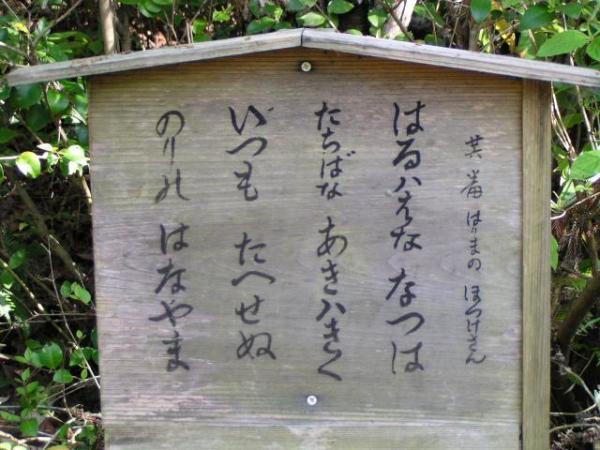 廿六番 はりまの ほつけさん
はるハはな なつは
たちばな あきハきく
いつも たへせぬ
のりの はなやま